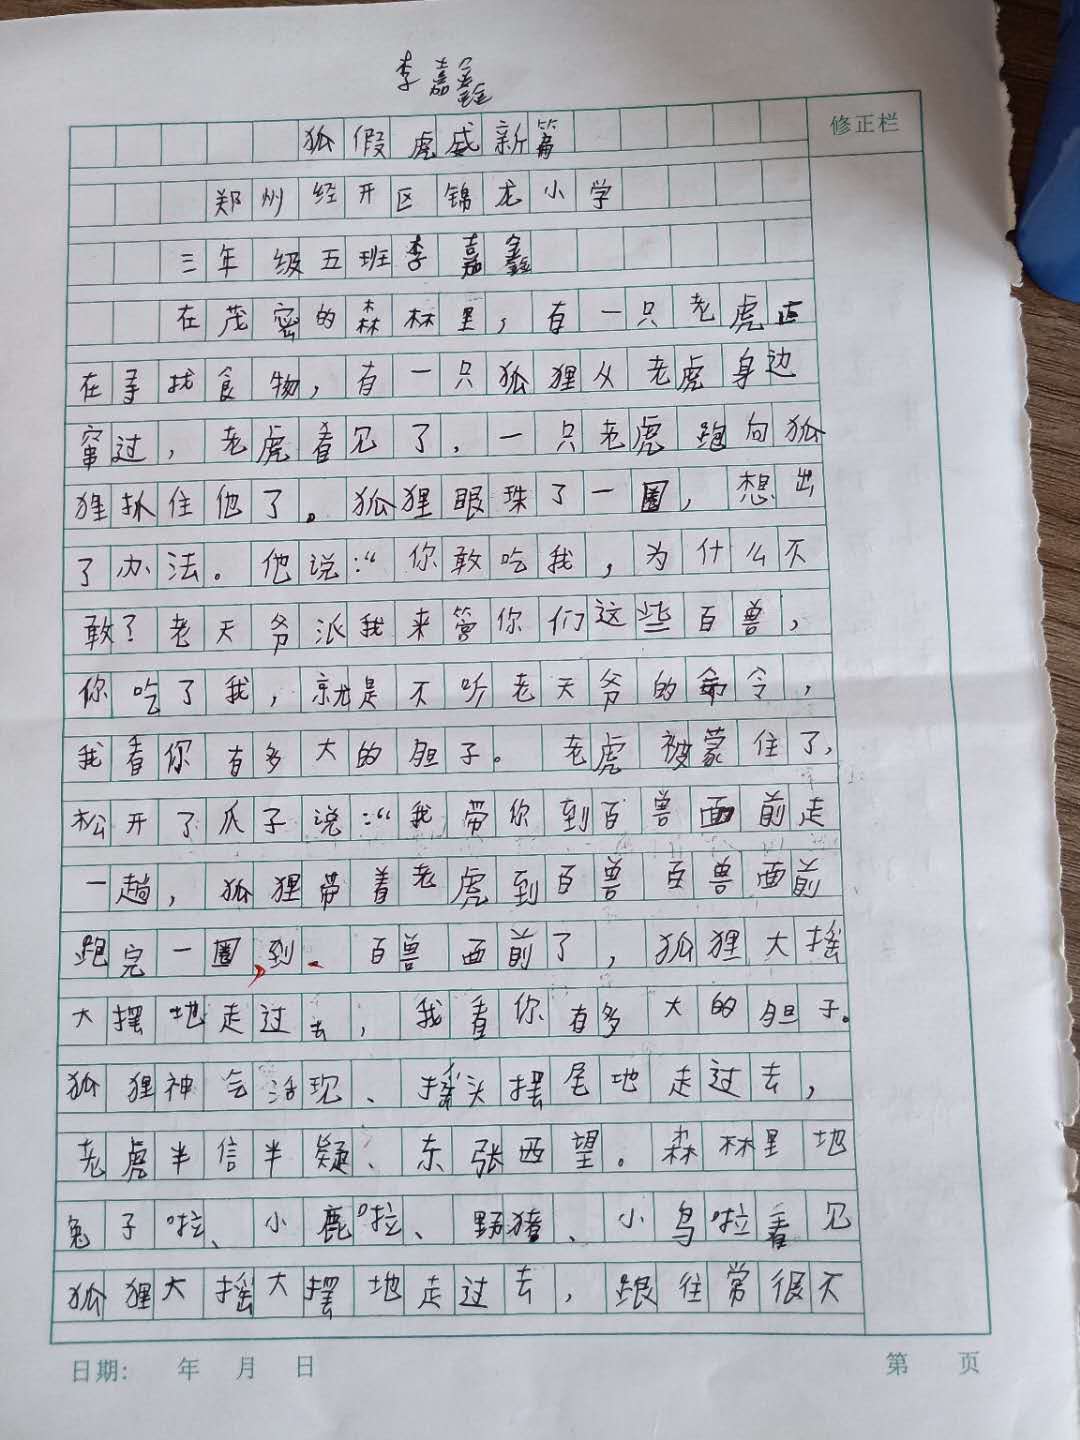 李嘉鑫
狐假虎威新篇
修正栏
郑州经开区锦龙小学
三年级五班李嘉鑫
在茂密的森林里，有一只老虎正
在寻找食物，有一只狐狸从老虎身边
窜过，老虎看见了，一只老虎跑向狐
狸抓住他了。狐狸眼珠了一圈，想出
了办法。他说：“你敢吃我，为什么不
敢？老天爷派我来管你们这些百兽，
你吃了我，就是不听老天爷的命令，
我看你有多大的胆子。老虎被蒙住了，
松开了爪子说：“我带你到百兽面前走
一趟，狐狸带着老虎到百兽百兽面前
跑完一圈，到。百兽面前了，狐狸大摇
大摆地走过去，我看你有多大的胆子。
狐狸神气活现、摇头摆尾地走过去，
老虎半信半疑、东张西望。森林里地
兔子啦、小鹿啦、野猪、小鸟啦看见
狐狸大摇大摆地走过去，跟往常很不
日期： 年 月 日
第 页